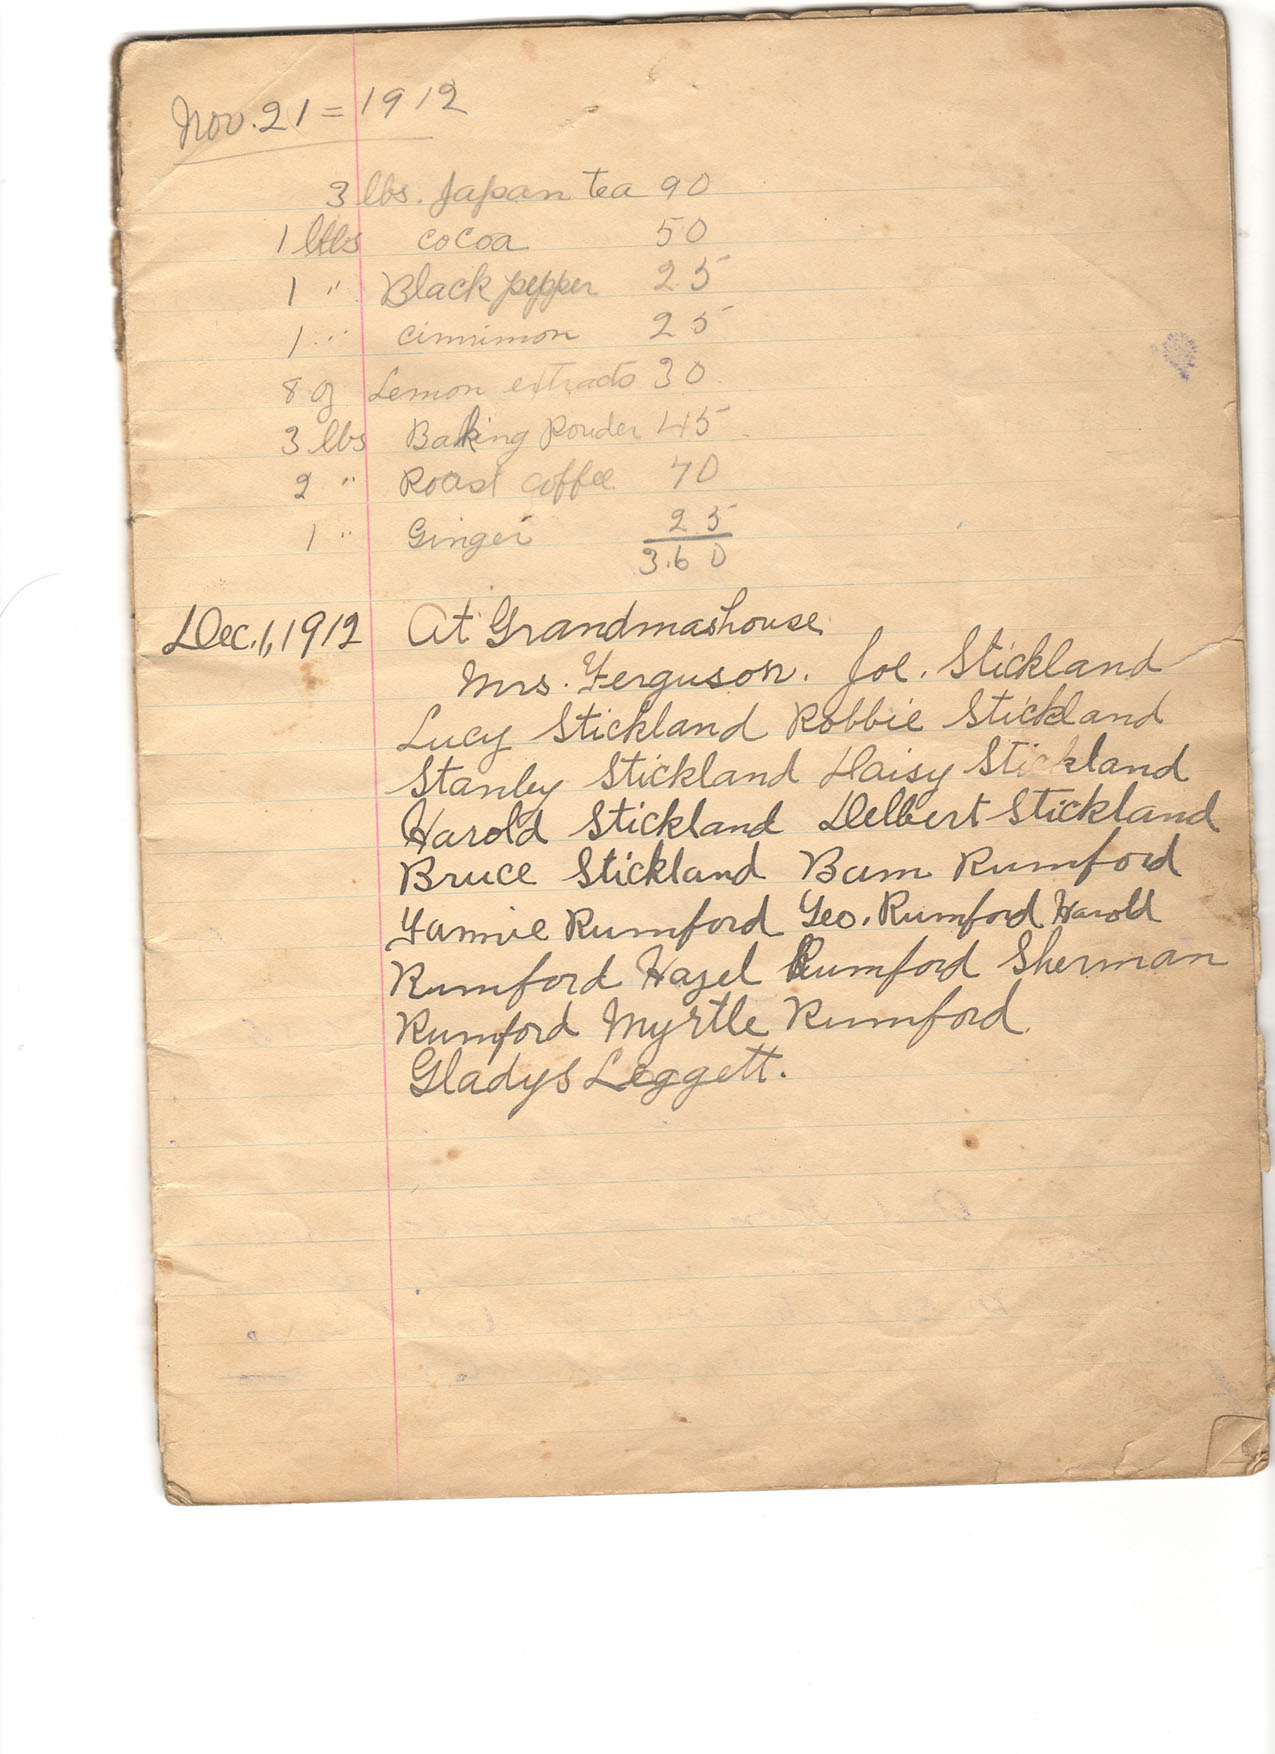 Nov. 21 = 1912
3 lbs. Japan tea 90
1 lbs cocoa 50
1 " Black pepper 25
1 " cinnimon 25
8 oz Lemon extracts 30
3 lbs Baking Powder 45
2 " Roast coffee 70
1 " Ginger 25
3.60
Dec. 1, 1912 At Grandmashouse
Mrs. Ferguson. Joe. Stickland
Lucy Stickland Robbie Stickland
Stanley Stickland Daisy Stickland
Harold Stickland Delbert Stickland
Bruce Stickland Bam Rumford
Fannie Rumford Geo. Rumford Harold
Rumford Hazel Rumford Sherman
Rumford Myrtle Rumford
Gladys Leggett.